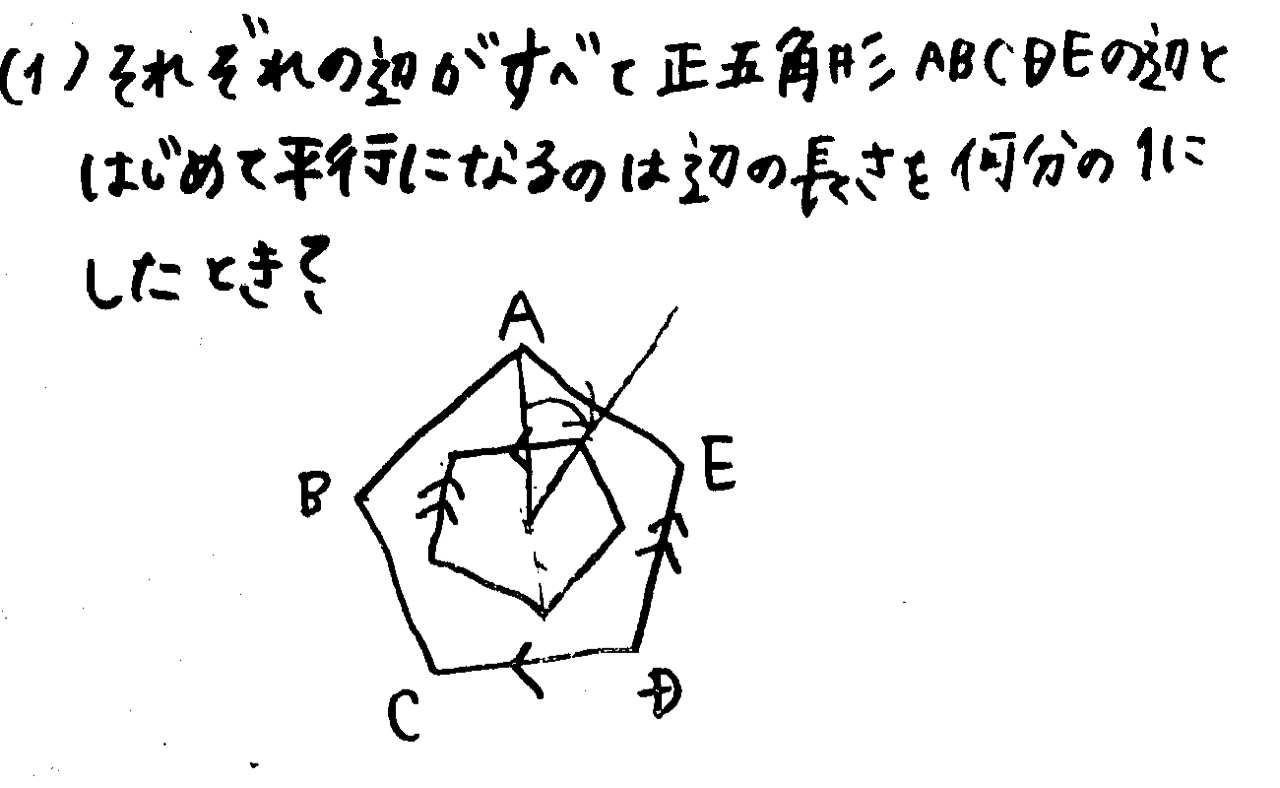 (1)それぞれの辺がすべて正五角形ABCDEの辺と
はじめて平行になるのは辺の長さを何分の1に
したとき?
A
B
E
C
D